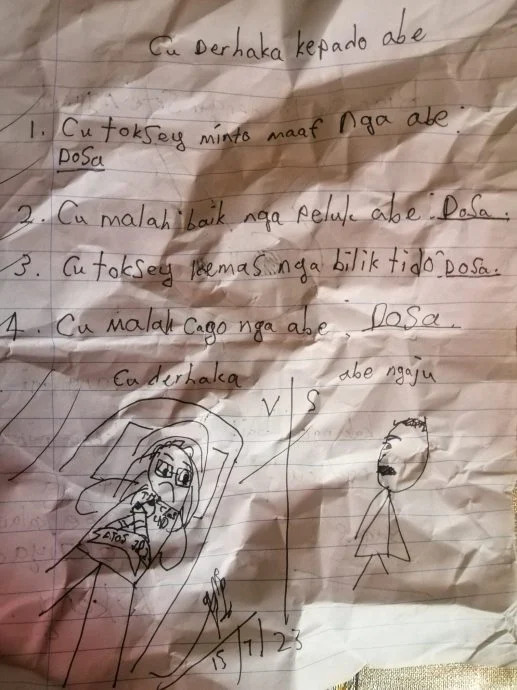 Cu Derhaka kepado abe
1. Cu toksey minto maaf nga abe:
DoSa
2. Cu malah baik nga peluk abe: DoSa.
3. Cu toksey kemas nga bilik tido: DoSa.
4. Cu malah Cago nga abe; DoSa.
Cu derhaka
V S
abe ngaju
15/7/23